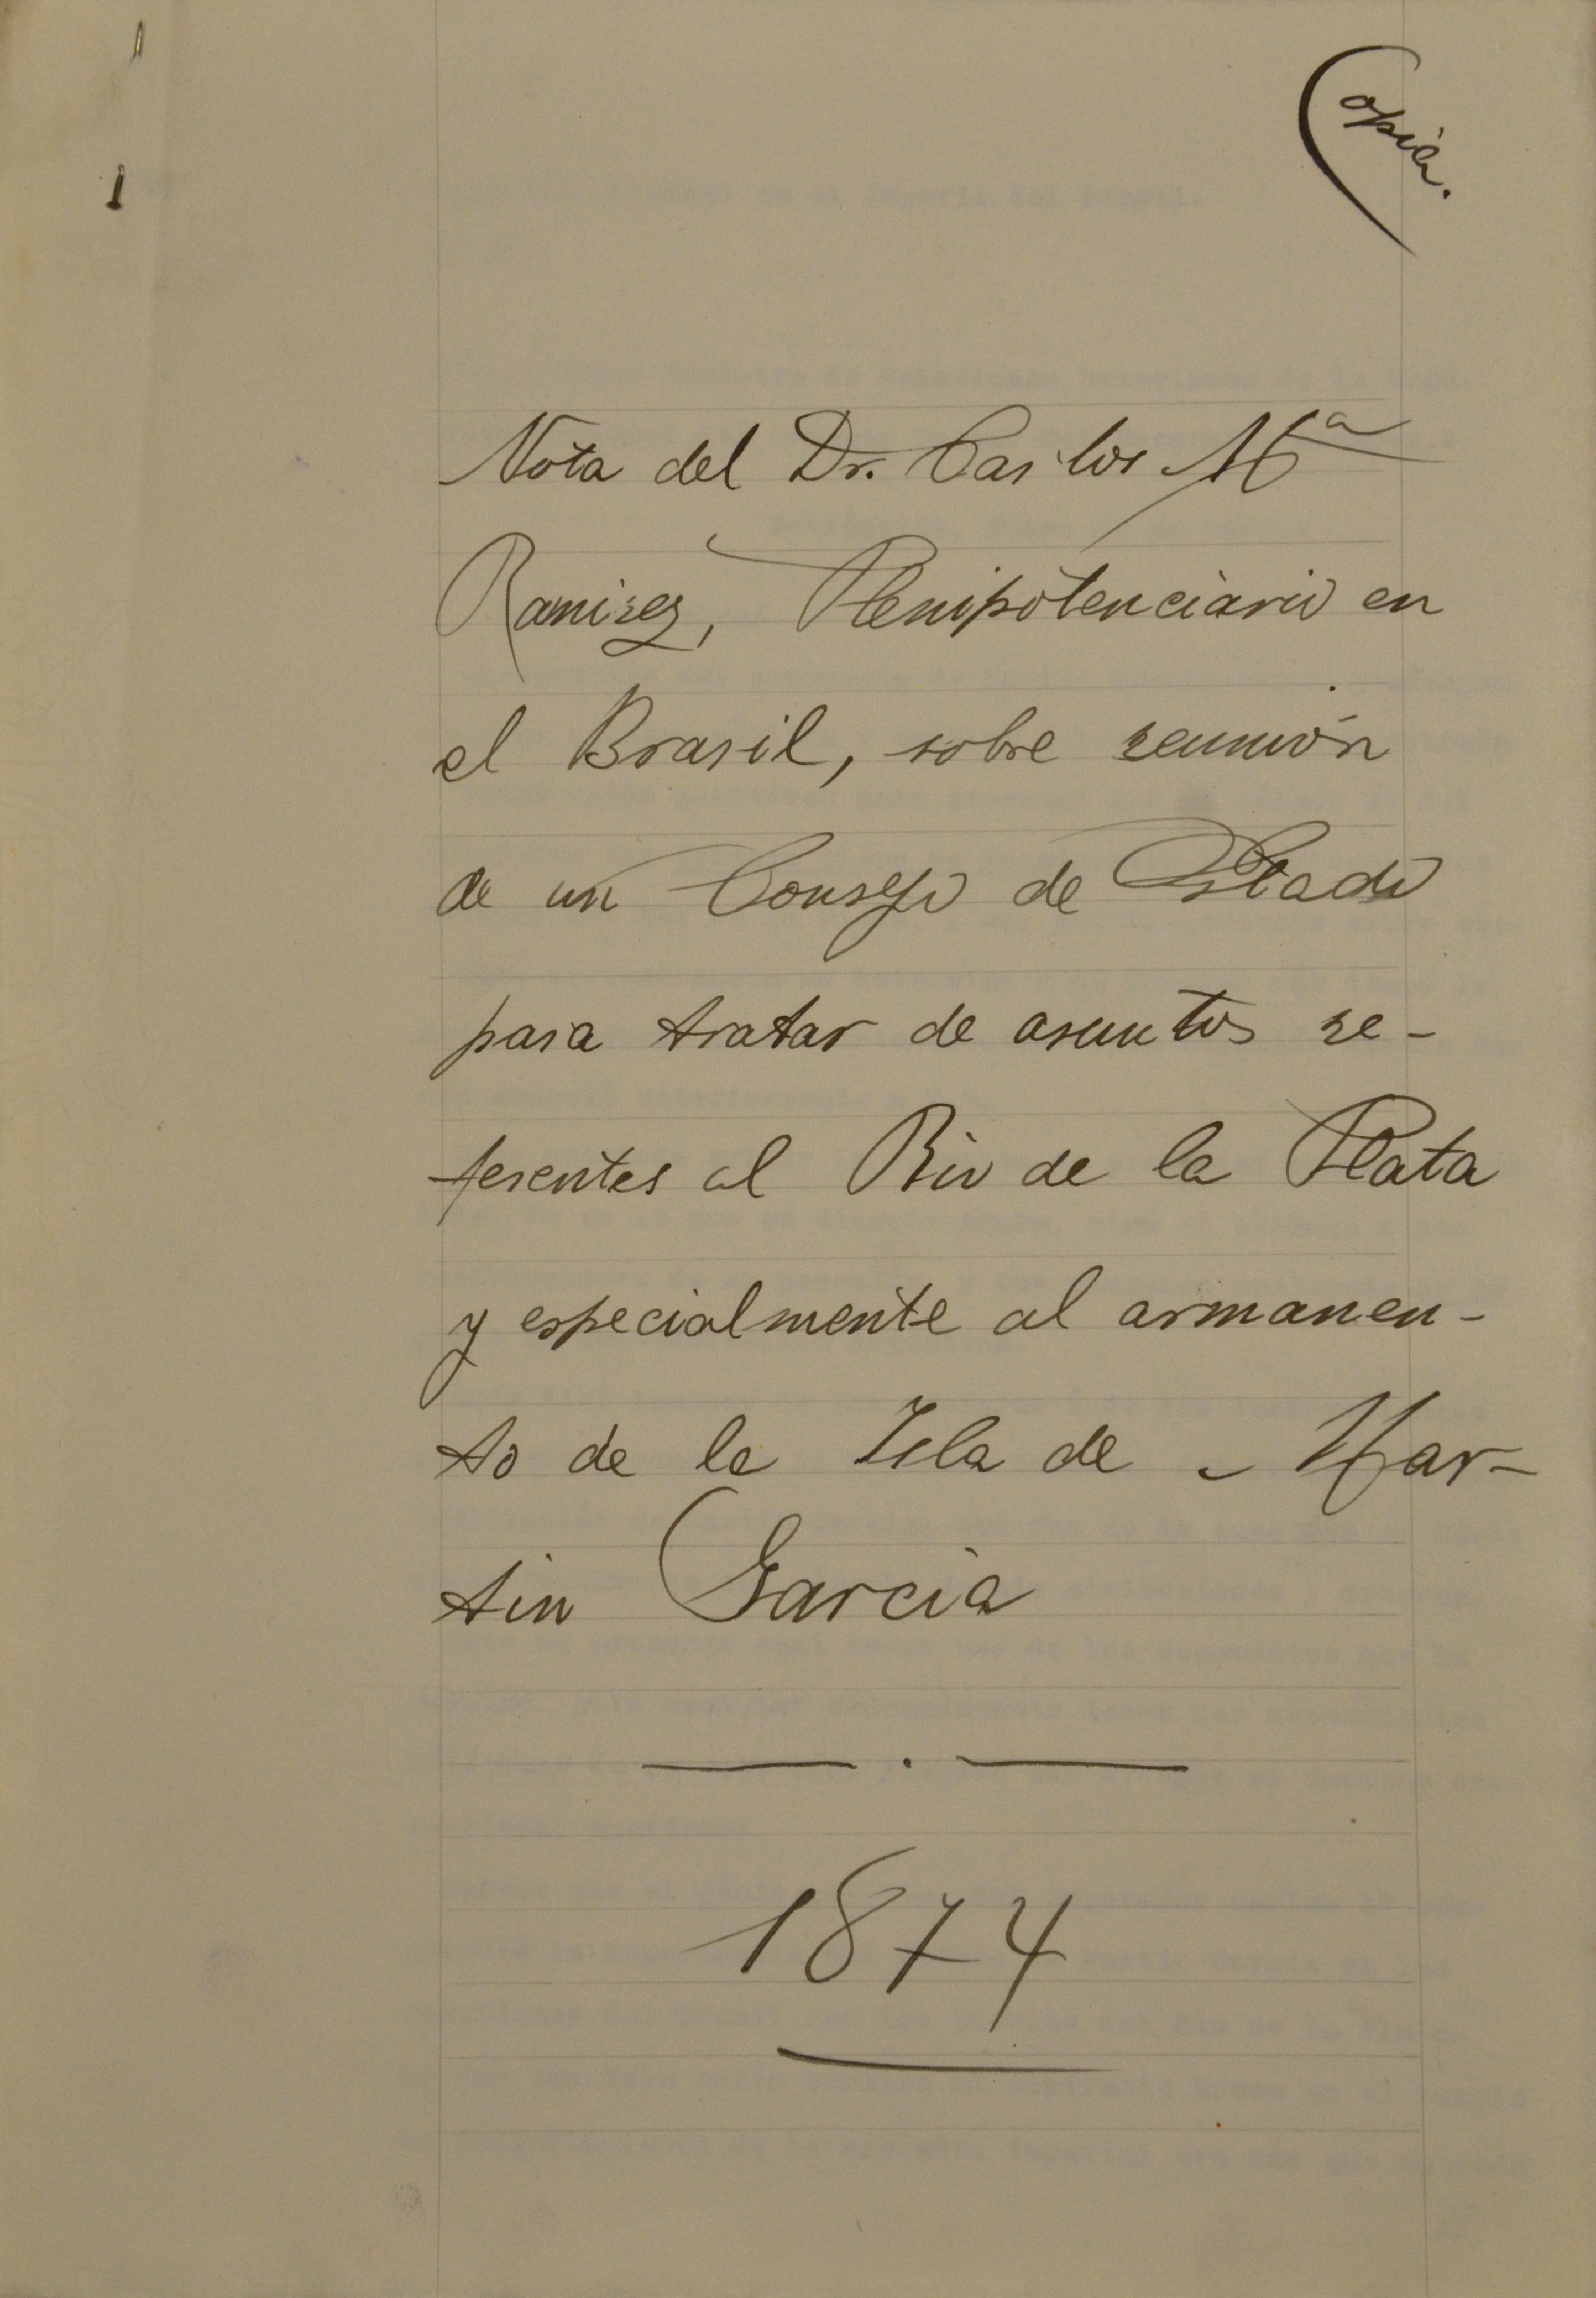 Copia.
Nota del Dr. Carlos Mª
Ramirez, Plenipotenciario en
el Brasil, sobre reunión
de un Consejo de Estado
para tratar de asuntos re-
ferentes al Rio de la Plata
y especialmente al armamen-
to de la Isla de Mar-
tin Garcia
1874